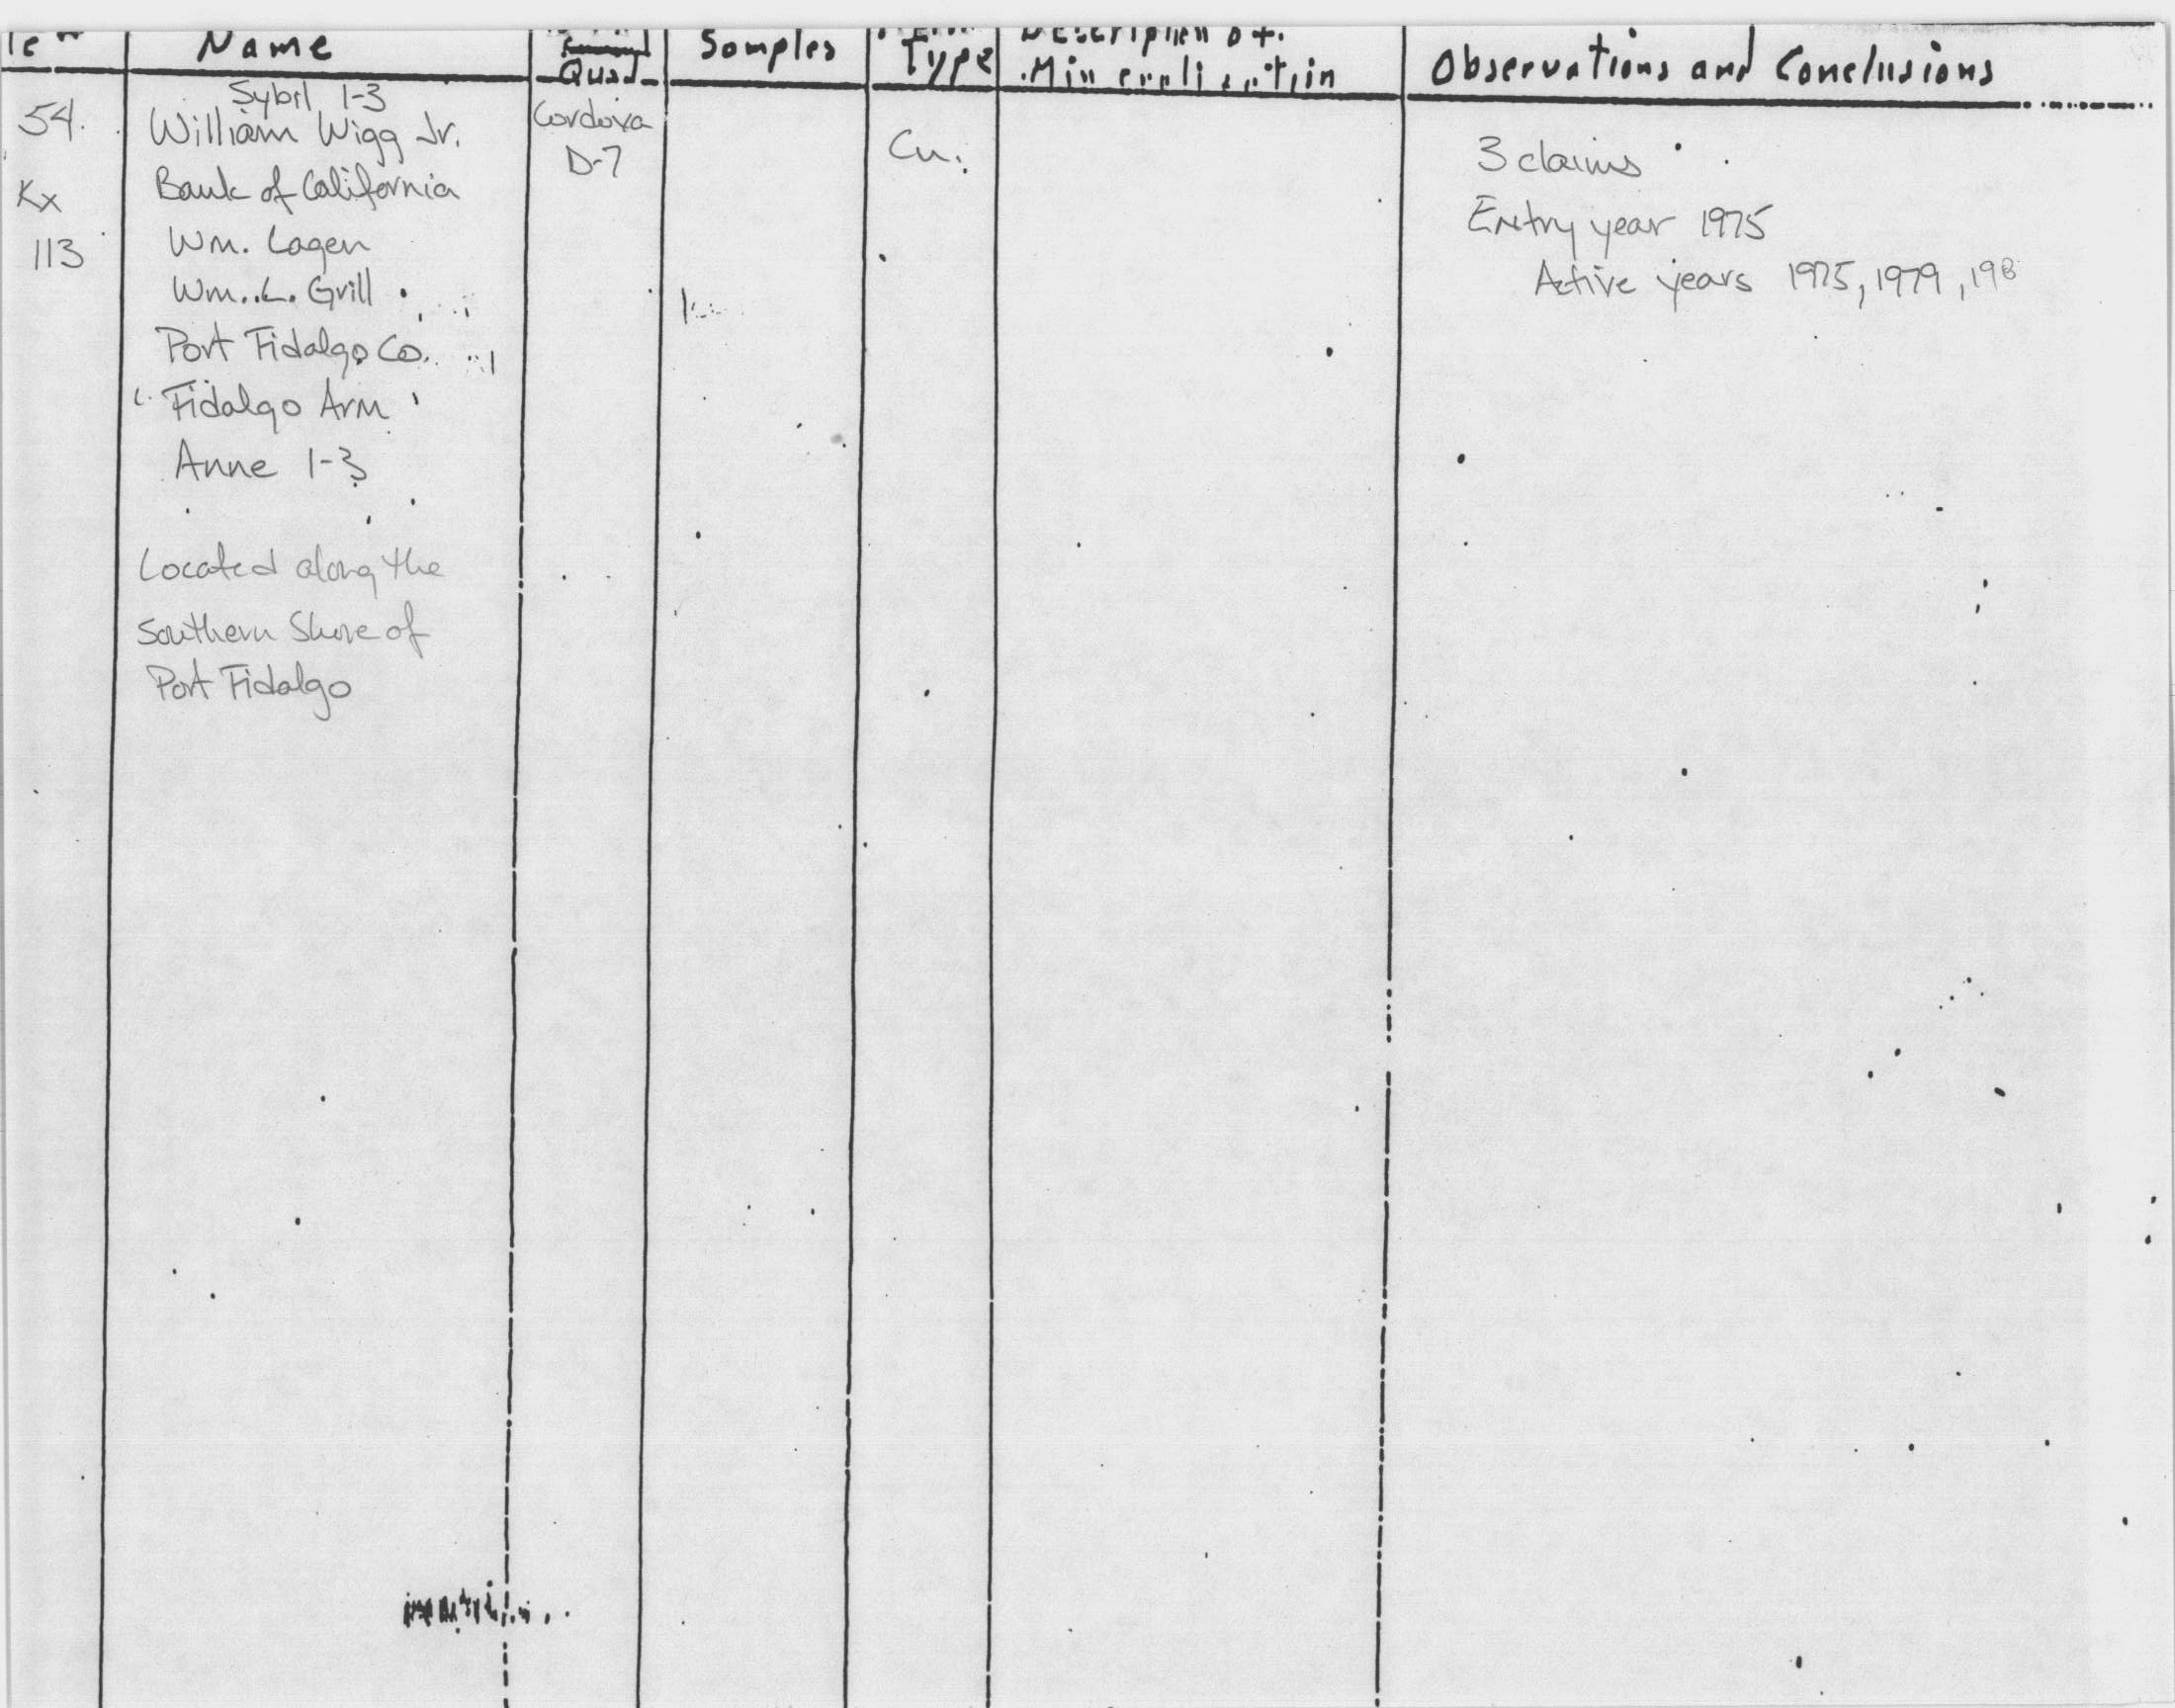 Name
Quad
Samples
Type
Observations and Conclusions
54.
Kx
113
Sybil 1-3
William Wigg Jr.
Bank of California
Wm. Lagen
Wm. L. Grill
Port Fidalgo Co.
Fidalgo Arm
Anne 1-3
Located along the
Southern Shore of
Port Fidalgo
Cordova
D-7
Cu.
3 claims
Entry year 1975
Active years 1975, 1979,